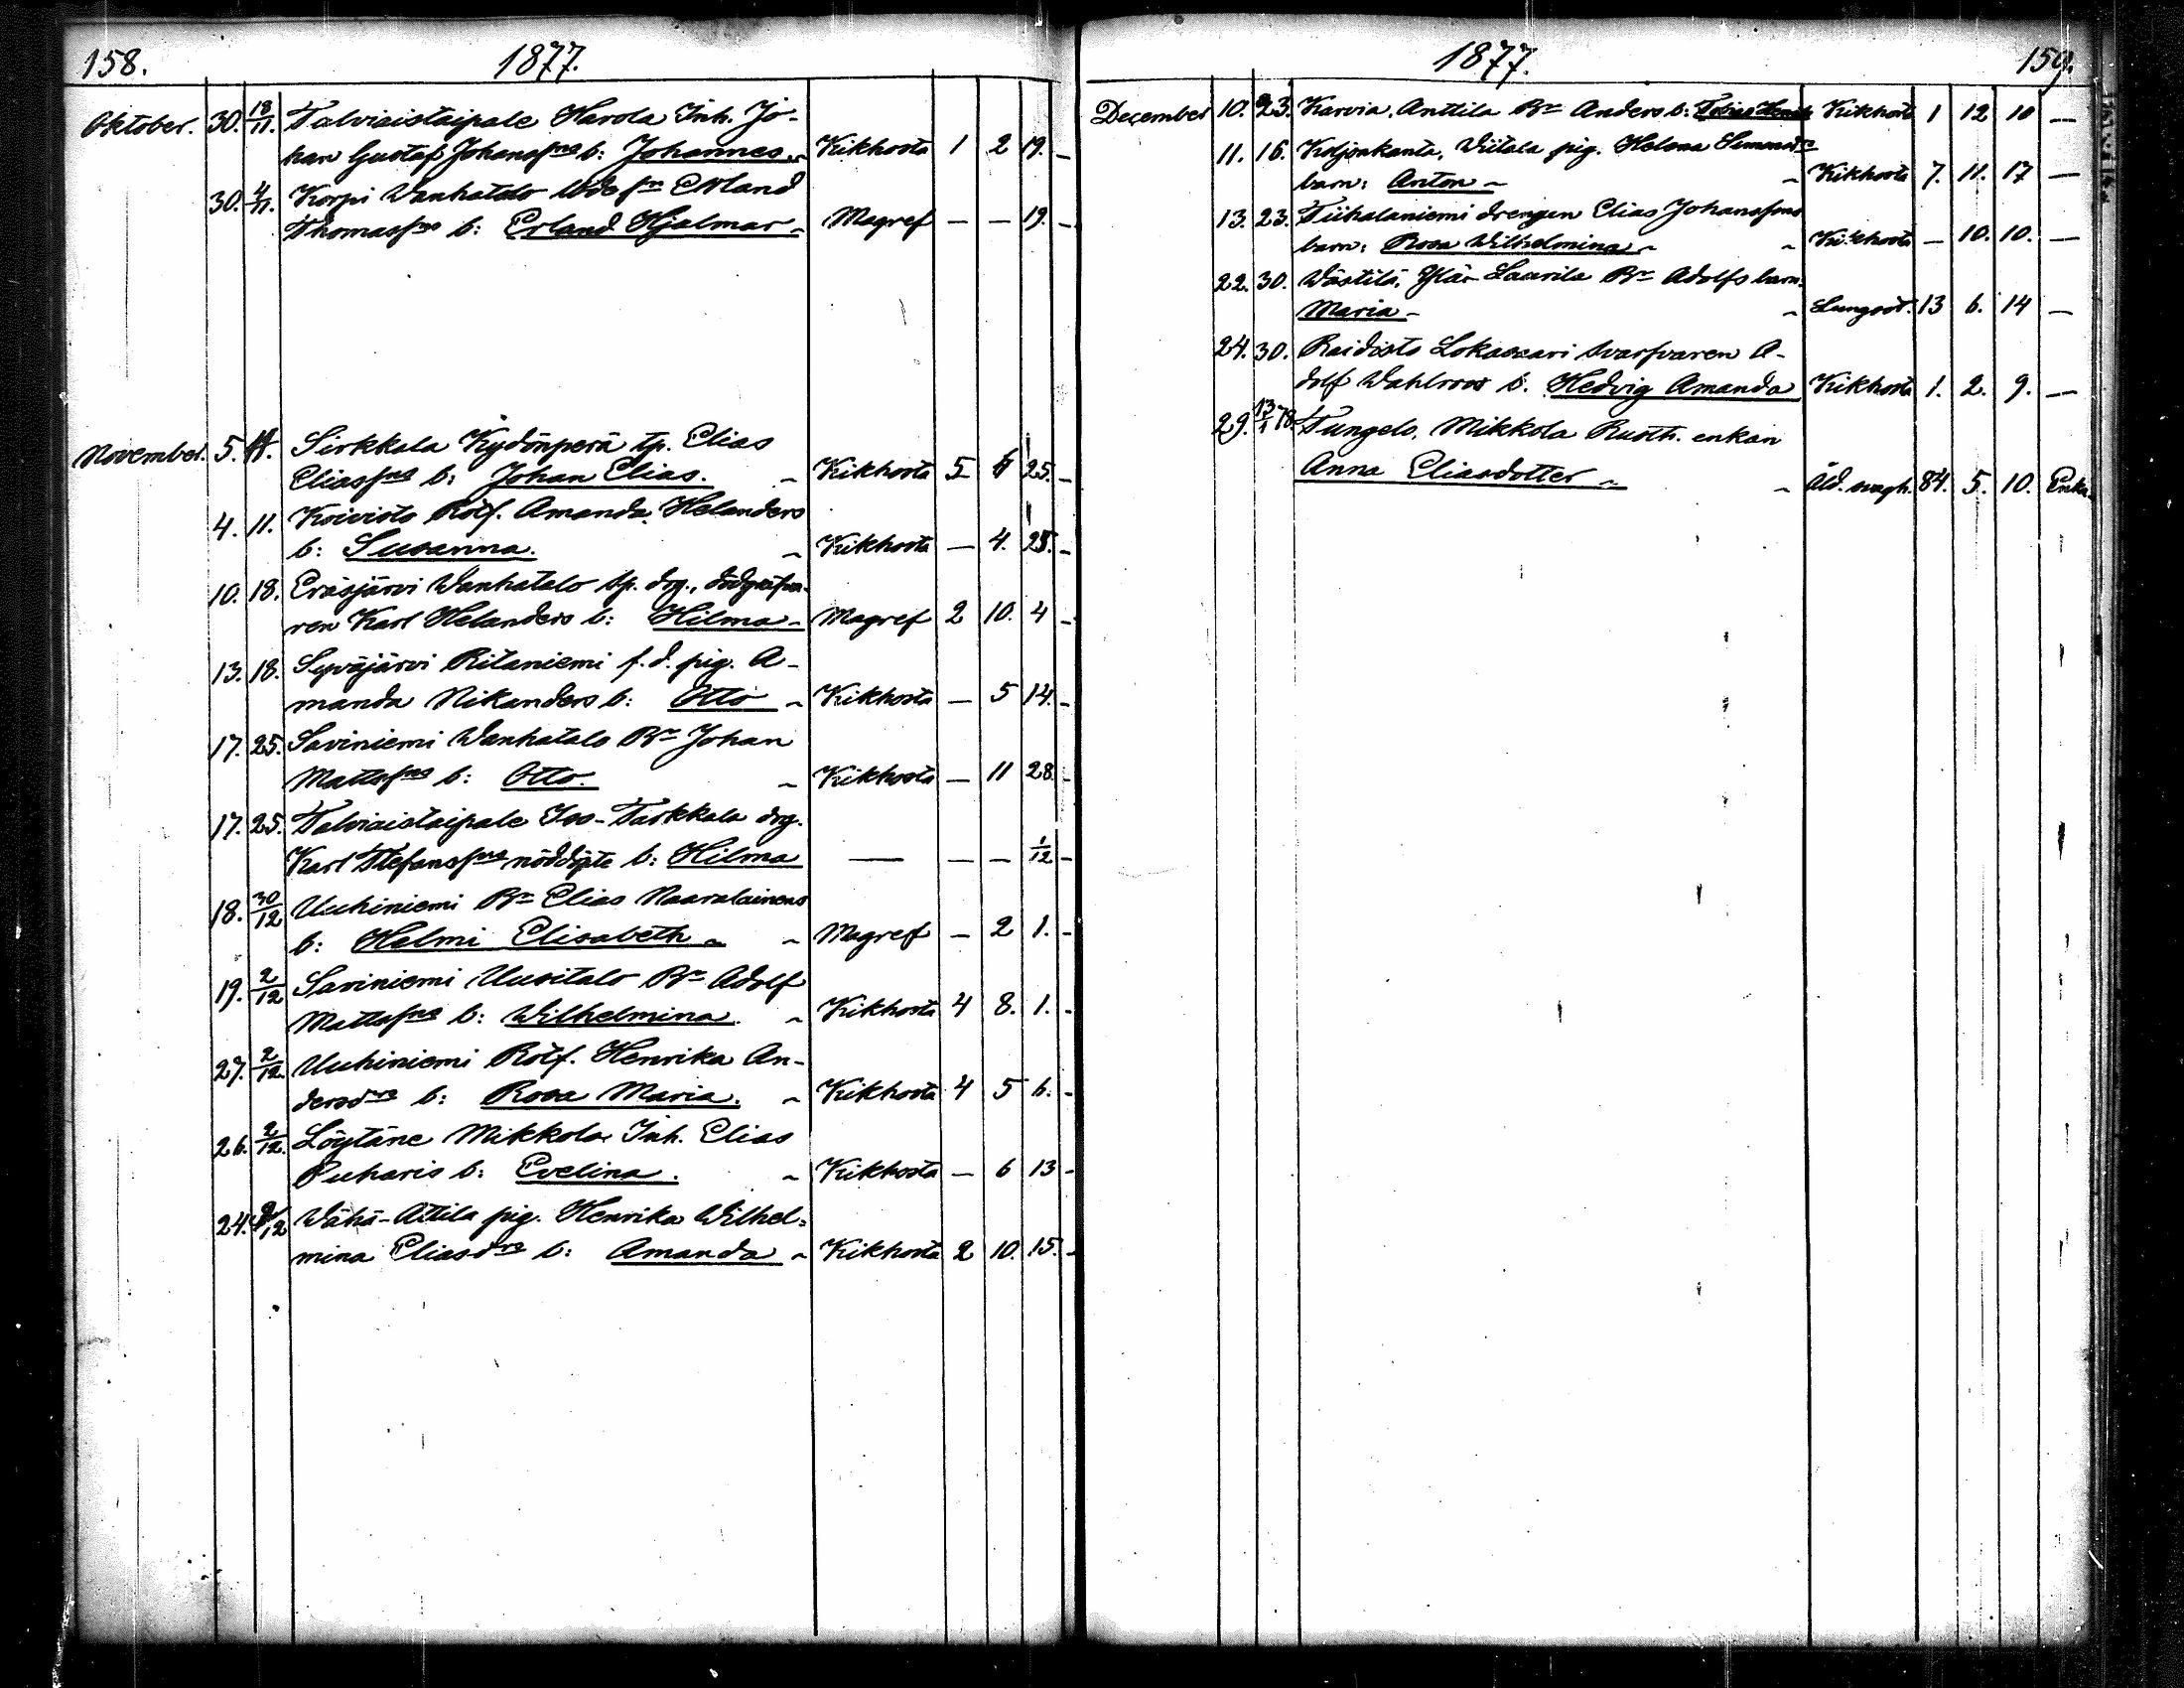 158. 1877.
Oktober. 30. 18/11. Talviaistaipale Harola Inh. Jo-
han Gustaf Johansſns b: Johannes. Kikhosta 1 2 19. -
30. 4/11. Korpi Wanhatalo Erland
Thomasſns b: Erland Hjalmar - Magref - - 19. -
November. 5. 11. Sirkkala Kydönperä tp. Elias
Eliasſns b: Johan Elias. - Kikhosta 5 6 25. -
4. 11. Koivisto Rotf. Amanda Helanders
b: Susanna. - Kikhosta - 4. 25. -
10. 18. Eräsjärvi Wanhatalo tp. drg., dödgräfva-
ren Karl Helanders b: Hilma - Magref 2 10. 4 -
13. 18. Syväjärvi Ritaniemi f.d. pig. A-
manda Nikanders b: Otto - Kikhosta - 5 14. -
17. 25. Saviniemi Wanhatalo Bn Johan
Mattsſns b: Otto. - Kikhosta - 11 28. -
17. 25. Talviaistaipale Iso-Tarkkala drg.
Karl Stefansſns nöddöpte b: Hilma — - - 1/12 -
18. 30/12 Uuhiniemi Bn Elias Naaralainens
b: Helmi Elisabeth - - Magref - 2 1. -
19. 2/12 Saviniemi Uusitalo Bn Adolf
Mattsſns b: Wilhelmina. - Kikhosta 4 8. 1. -
27. 2/12. Uuhiniemi Rotf. Henrika An-
dersdrs b: Rosa Maria. - Kikhosta 4 5 6. -
26. 2/12. Löytäne Mikkola Inh. Elias
Puharis b: Evelina. - Kikhosta - 6 13 -
24. 9/12 Wähä-Attila pig. Henrika Wilhel=
mina Eliasdrs b: Amanda - Kikhosta 2 10. 15. -
1877. 159.
December 10. 23. Karvia, Anttila Bn Anders b: Kikhosta 1 12 10 —
11. 16. Koljonkanta, Wiitala pig. Helena Simonds
barn: Anton - - Kikhosta 7. 11. 17 —
13. 23. Tiihalaniemi drengen Elias Johansſons
barn: Rosa Wilhelmina - - Kikhosta - 10. 10. —
22. 30. Wästilä, Ylä-Laurila Bn Adolfs barn:
Maria - - Lungsot. 13 6. 14 —
24. 30. Raidisto Lokasaari Svarfvaren A-
dolf Wahlroos b. Hedvig Amanda Kikhosta 1. 2. 9. —
29. 13/1 78. Tungelo, Mikkola Rusth. enkan
Anna Eliasdotter - - Åld. svagh. 84. 5. 10. Enka.